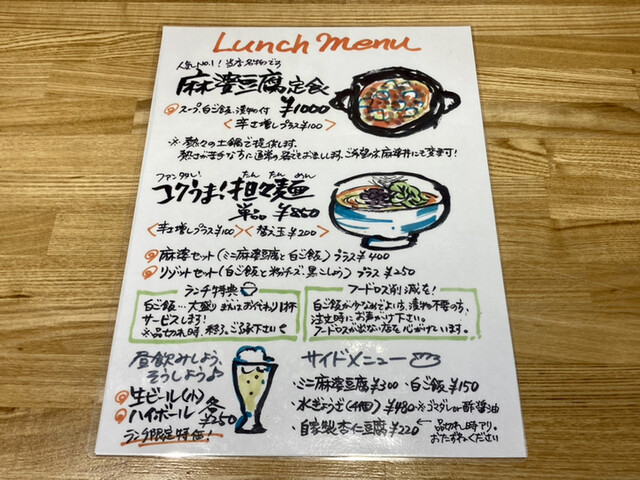 Lunch menu
人気No.1！当店名物です
麻婆豆腐定食
スープ、白ご飯、漬物付 ¥1000
<辛さ増しプラス¥100>
※熱々の土鍋で提供します。
熱さが苦手な方に通常の器でお出しします。ご希望の方麻婆丼にも変更可！
ファンタジい
コクうま！担々麺
たんたんめん
単品 ¥850
<辛さ増しプラス¥100> <替え玉¥200>
麻婆セット(ミニ麻婆豆腐と白ご飯)プラス¥400
リゾットセット(白ご飯と粉チーズ、黒こしょう)プラス¥250
ランチ特典
白ご飯…大盛りまたはおかわり1杯
サービスします！
※品切れ時、終了。ご了承下さい
フードロス削減を！
白ご飯が少なめでよい方、漬物不要の方、
注文時にお声がけ下さい。
フードロスが出ない店を心がけています。
昼飲みしよう、
そうしよう♪
生ビール(小)
ハイボール 各¥250
ランチ限定特価！
サイドメニュー
・ミニ麻婆豆腐¥300 ・白ご飯¥150
・水ぎょうざ(4個)¥480 ※ゴマダレor酢醤油
・自家製杏仁豆腐¥220 ←品切れ時アリ。
おたずねください